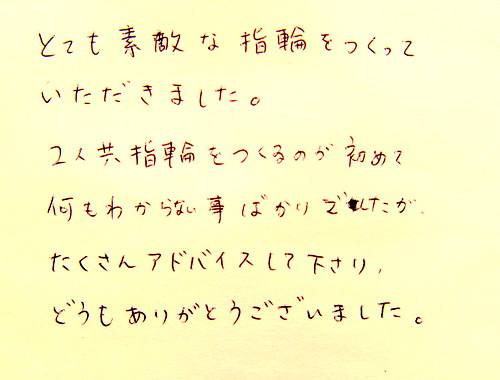 とても素敵な指輪をつくって
いただきました。
2人共指輪をつくるのが初めて
何もわからない事ばかりでしたが、
たくさんアドバイスして下さり、
どうもありがとうございました。